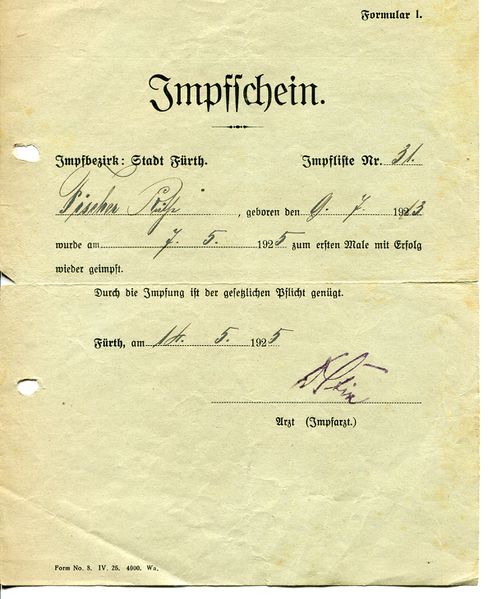 Formular I.
Impfschein.
Impfbezirk: Stadt Fürth. Impfliste Nr. 31.
Fischer, geboren den 9. 7. 1913
wurde am 7. 5. 1925 zum ersten Male mit Erfolg
wieder geimpft.
Durch die Impfung ist der gesetzlichen Pflicht genügt.
Fürth, am 14. 5. 1925
Arzt (Impfarzt.)
Form No. 8. IV. 25. 4000. Wa.